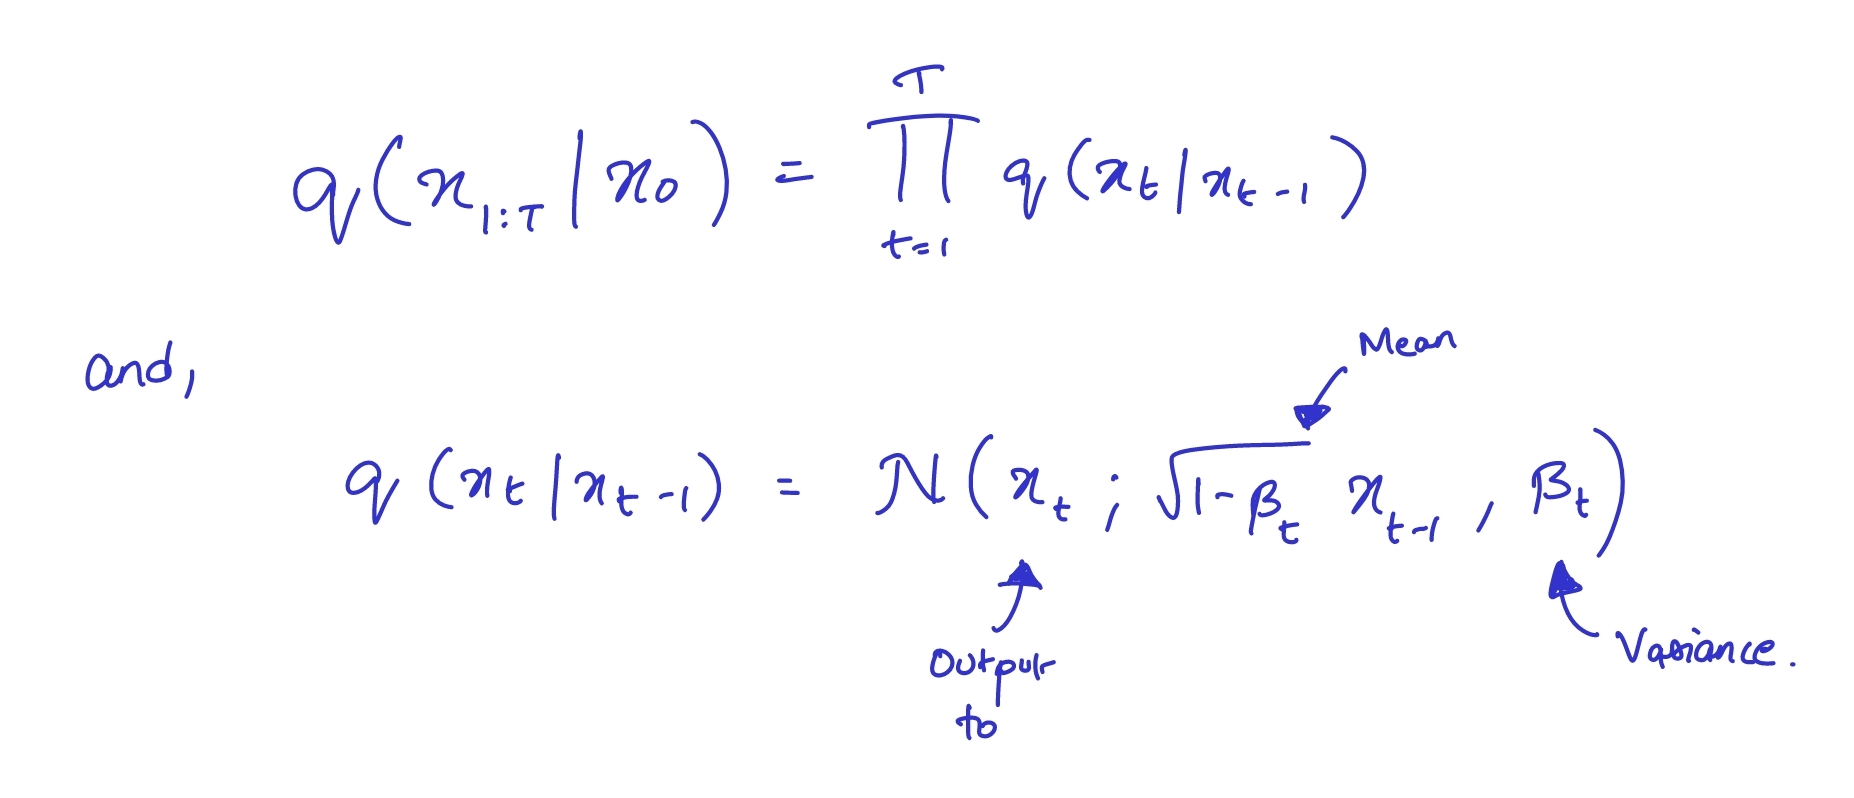 q(x₁:T | x₀) = ∏ₜ₌₁ᵀ q(xₜ | xₜ₋₁)
and,
Mean
q(xₜ | xₜ₋₁) = N(xₜ ; √(1-βₜ) xₜ₋₁ , βₜ)
Output
to
Variance.